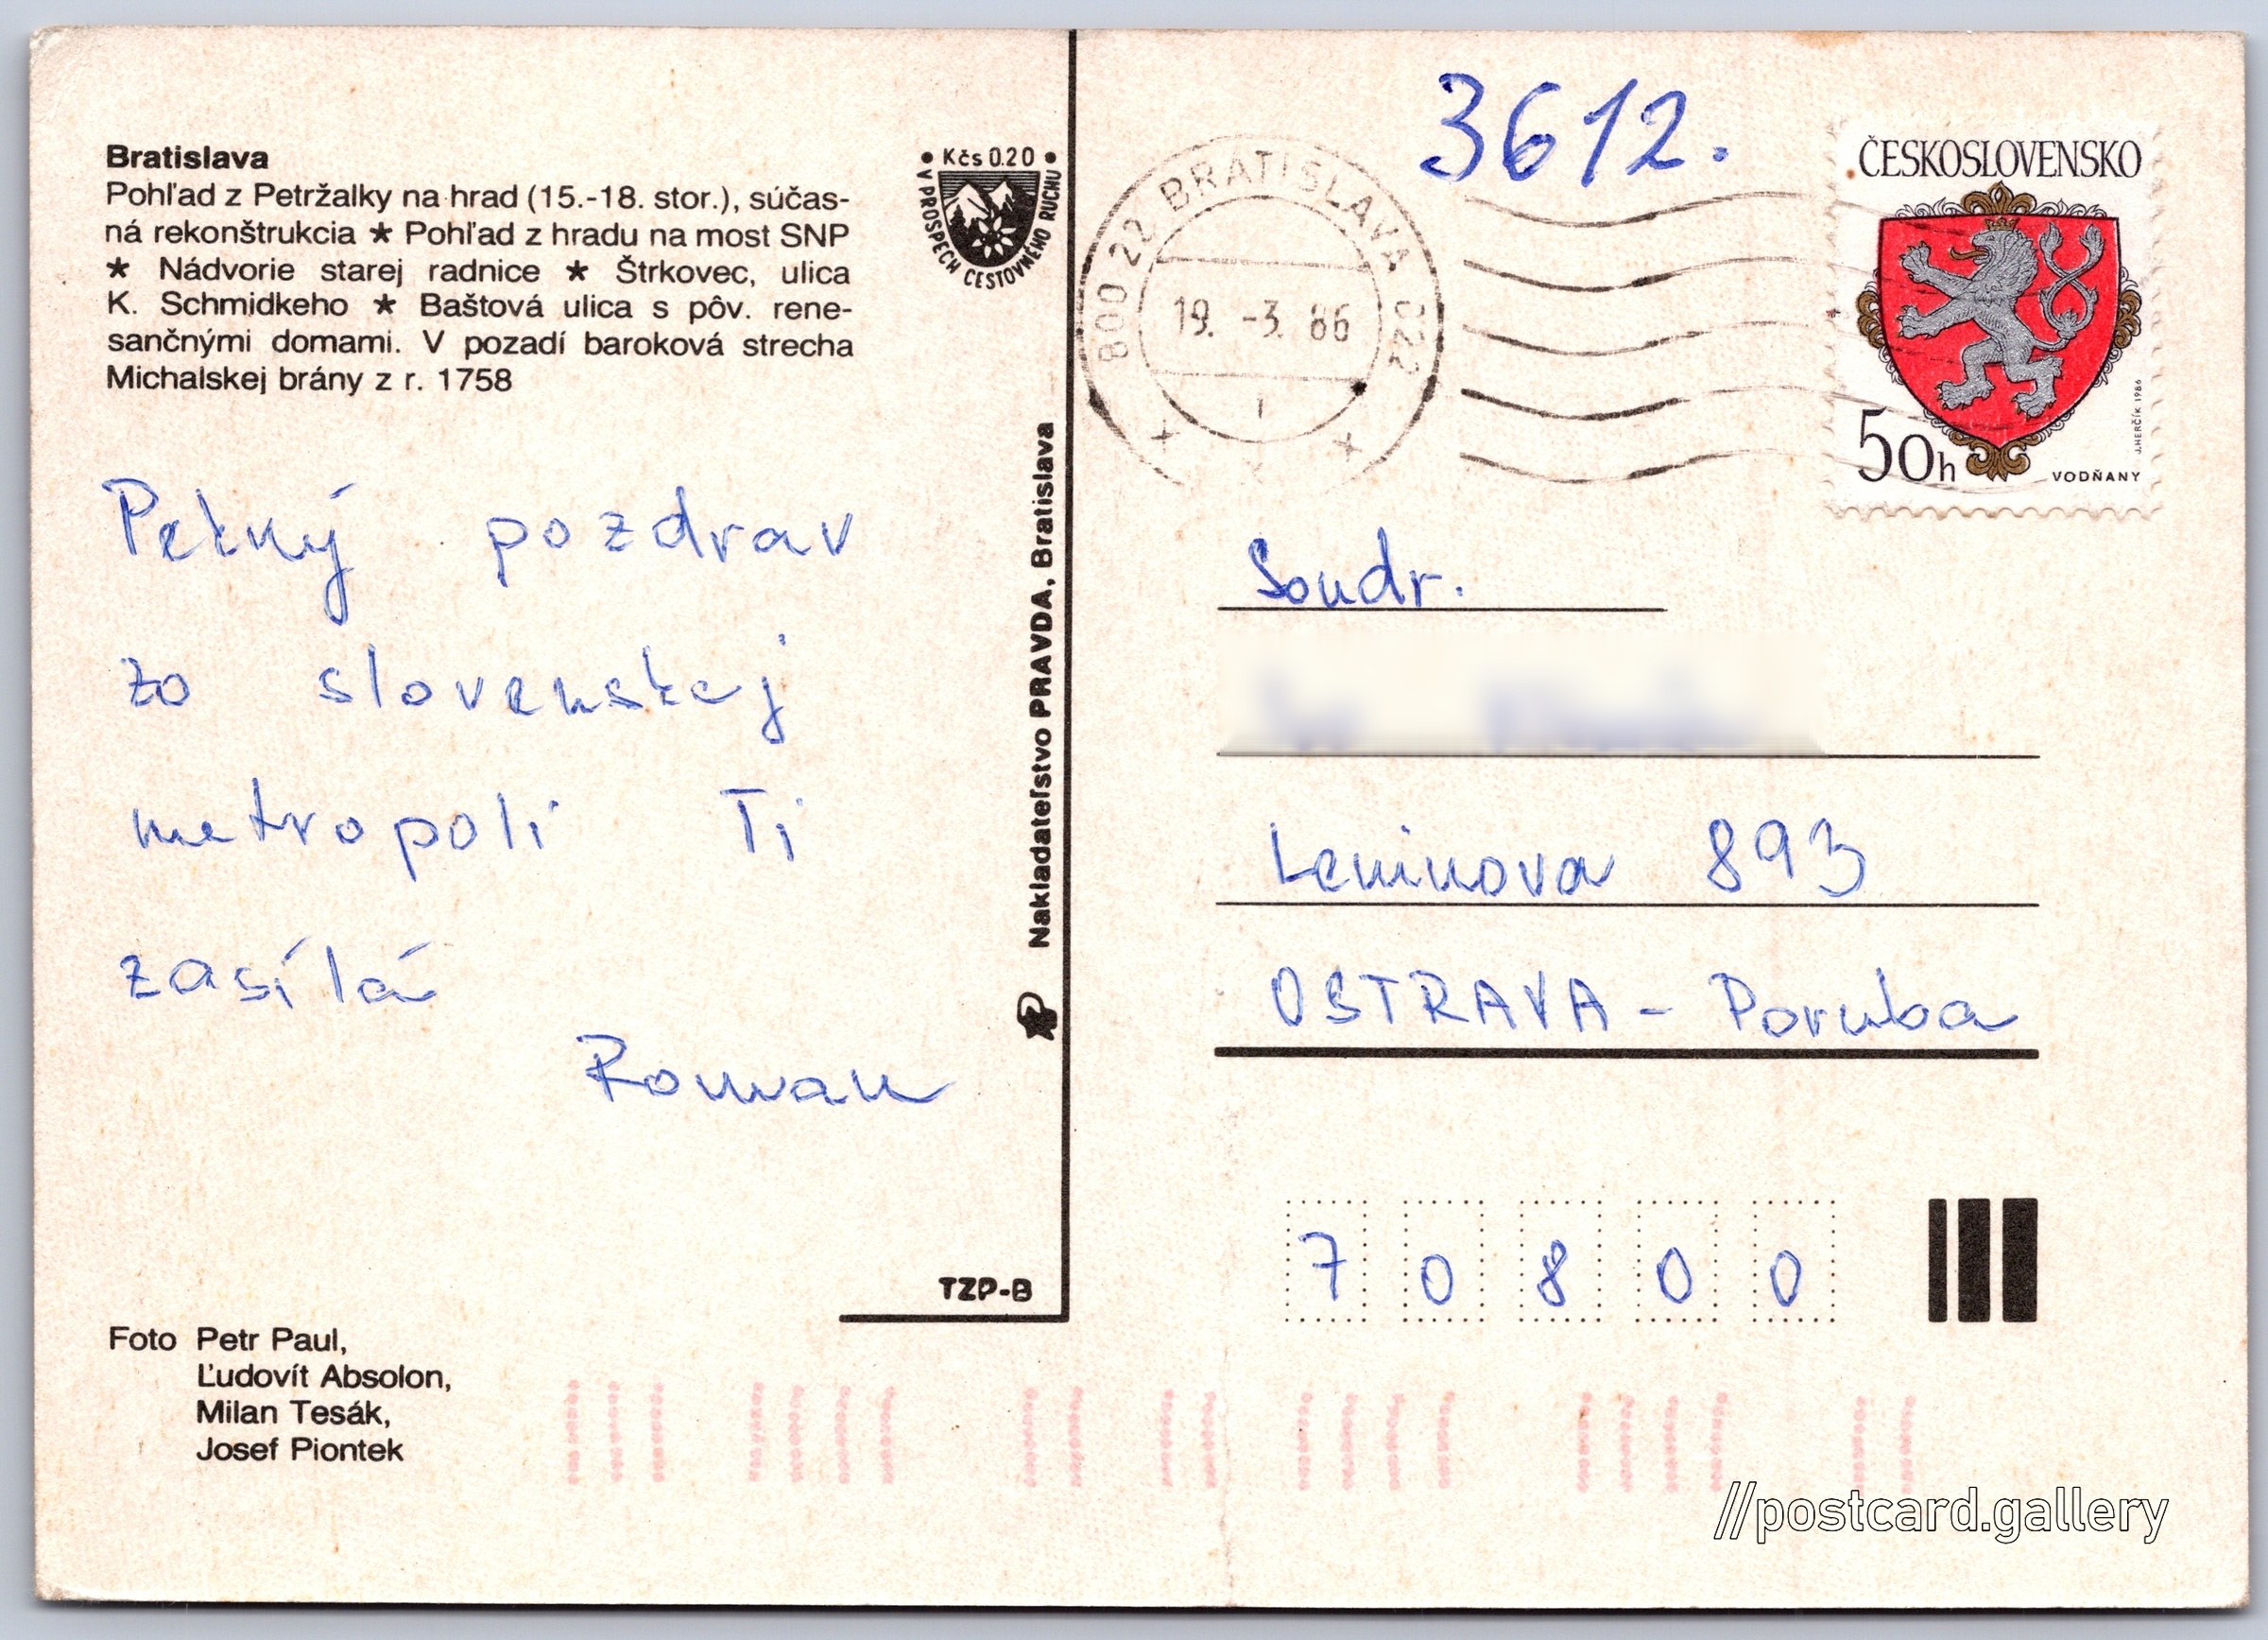 Bratislava
Pohľad z Petržalky na hrad (15.-18. stor.), súčas-
ná rekonštrukcia ★ Pohľad z hradu na most SNP
★ Nádvorie starej radnice ★ Štrkovec, ulica
K. Schmidkeho ★ Baštová ulica s pôv. rene-
sančnými domami. V pozadí baroková strecha
Michalskej brány z r. 1758
• Kčs 0.20 •
V PROSPECH CESTOVNÉHO RUCHU
Pekný pozdrav
zo slovenskej
metropoli Ti
zasílá
Roman
Nakladateľstvo PRAVDA, Bratislava
TZP-B
Foto Petr Paul,
Ľudovít Absolon,
Milan Tesák,
Josef Piontek
3612.
800 22 BRATISLAVA 022
19. -3. 86
1
ČESKOSLOVENSKO
50h
VODŇANY
J.HERČÍK 1986
Soudr.
Leninova 893
OSTRAVA - Poruba
7 0 8 0 0
//postcard.gallery